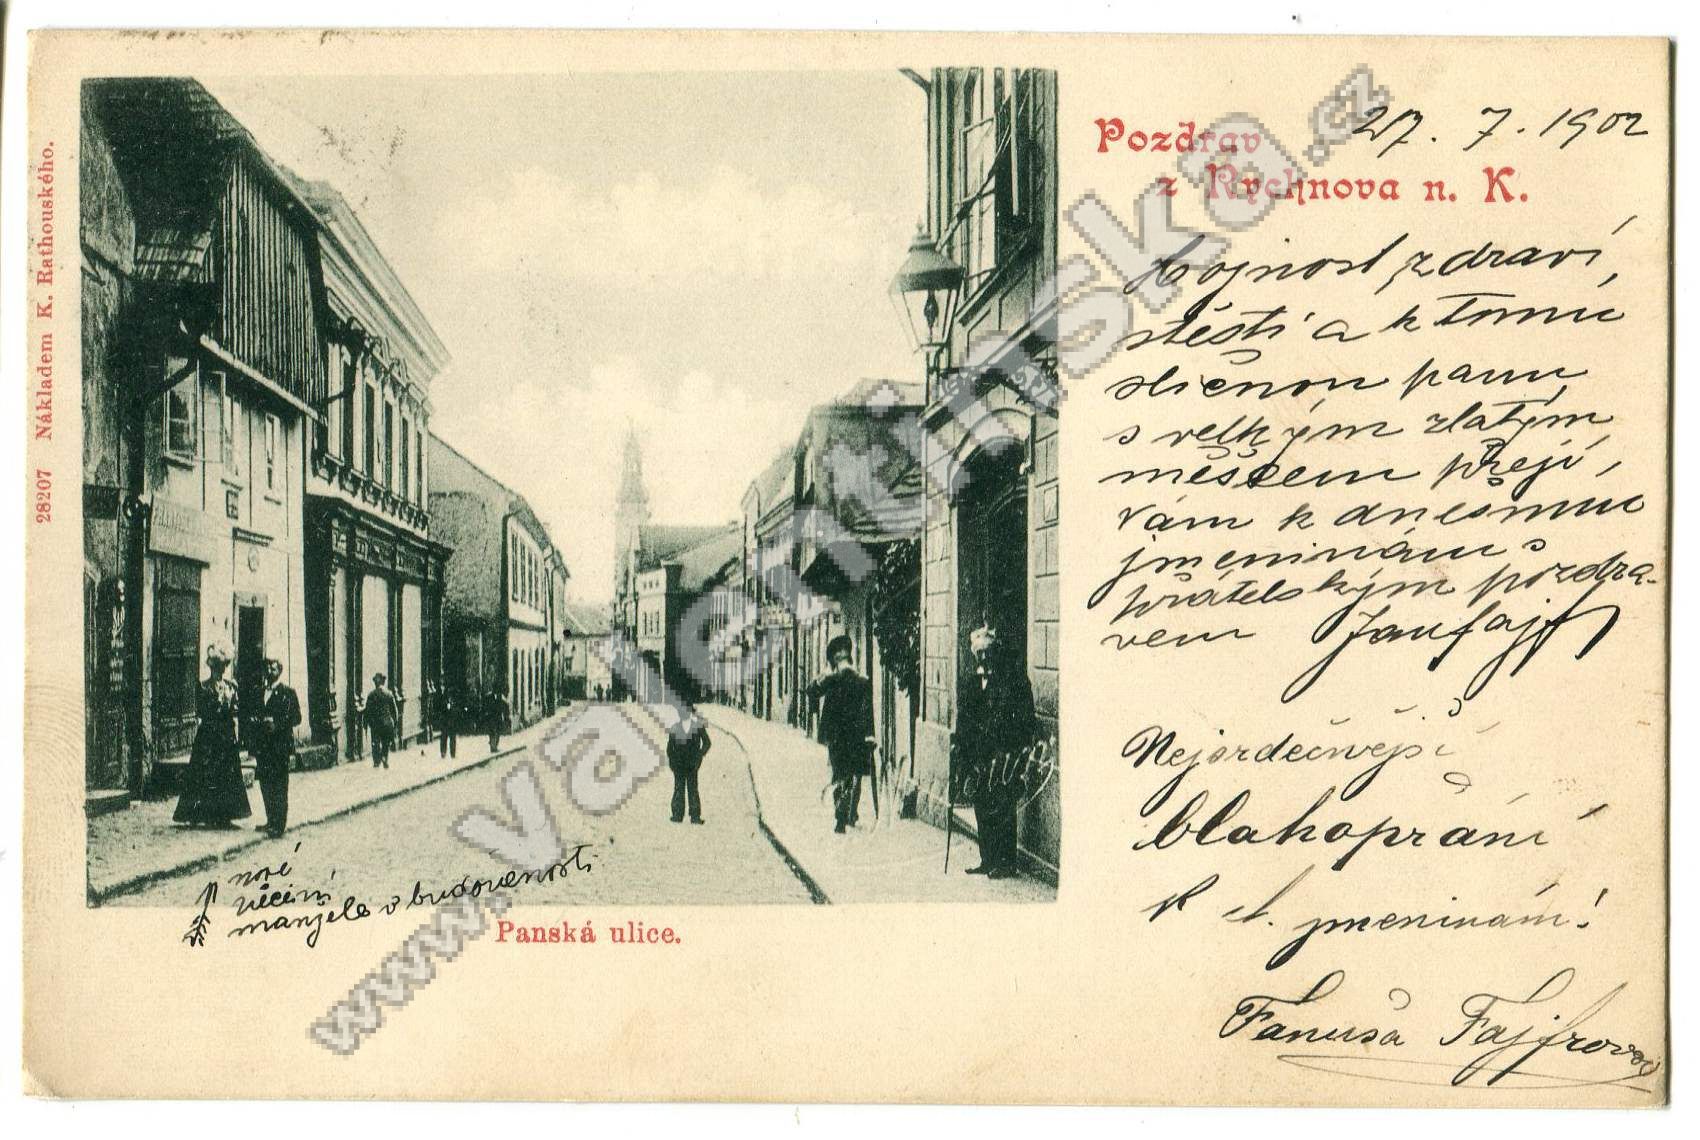 28207 Nákladem K. Rathouského.
Pozdrav
z Rychnova n. K.
27. 7. 1902
hojnost zdraví,
štěstí a k tomu
sličnou panu
s velkým zlatým
měšcem přejí,
vám k dnesmuu
jmeninám s
přátelským pozdra-
vem
Nejsrdečnější
blahopřání
K jmeninám!
Fanuša Fajfrova
nové
manžele v budoucnosti
Panská ulice.
www.valentinska.cz